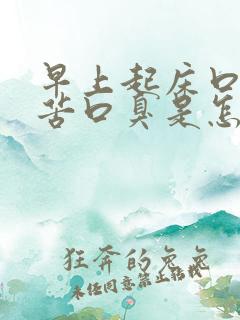 早上起床口
苦口臭是怎
狂奔的兔兔
未经同意禁止转载